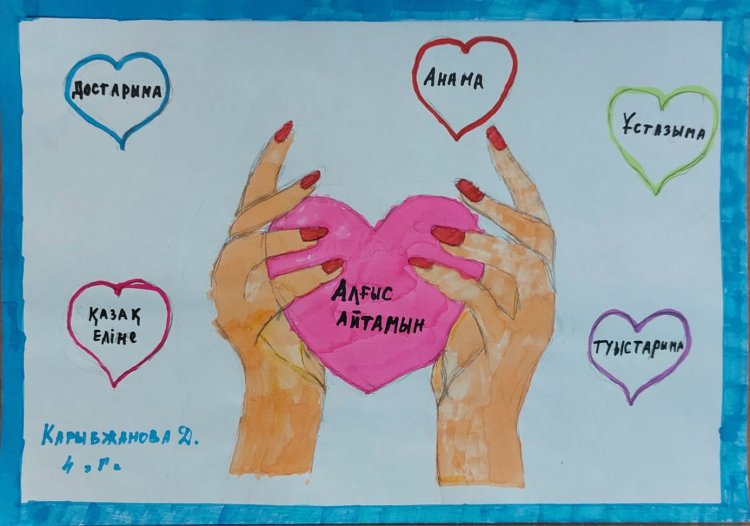 Достарыма
Анама
Ұстазыма
Алғыс
айтамын
Қазақ
еліне
туыстарыма
Карыбжанова Д.
4 "г"